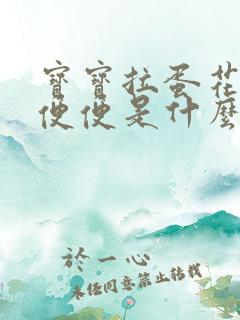 寶寶拉蛋花
便便是什麼
於一心
未經同意禁止轉載